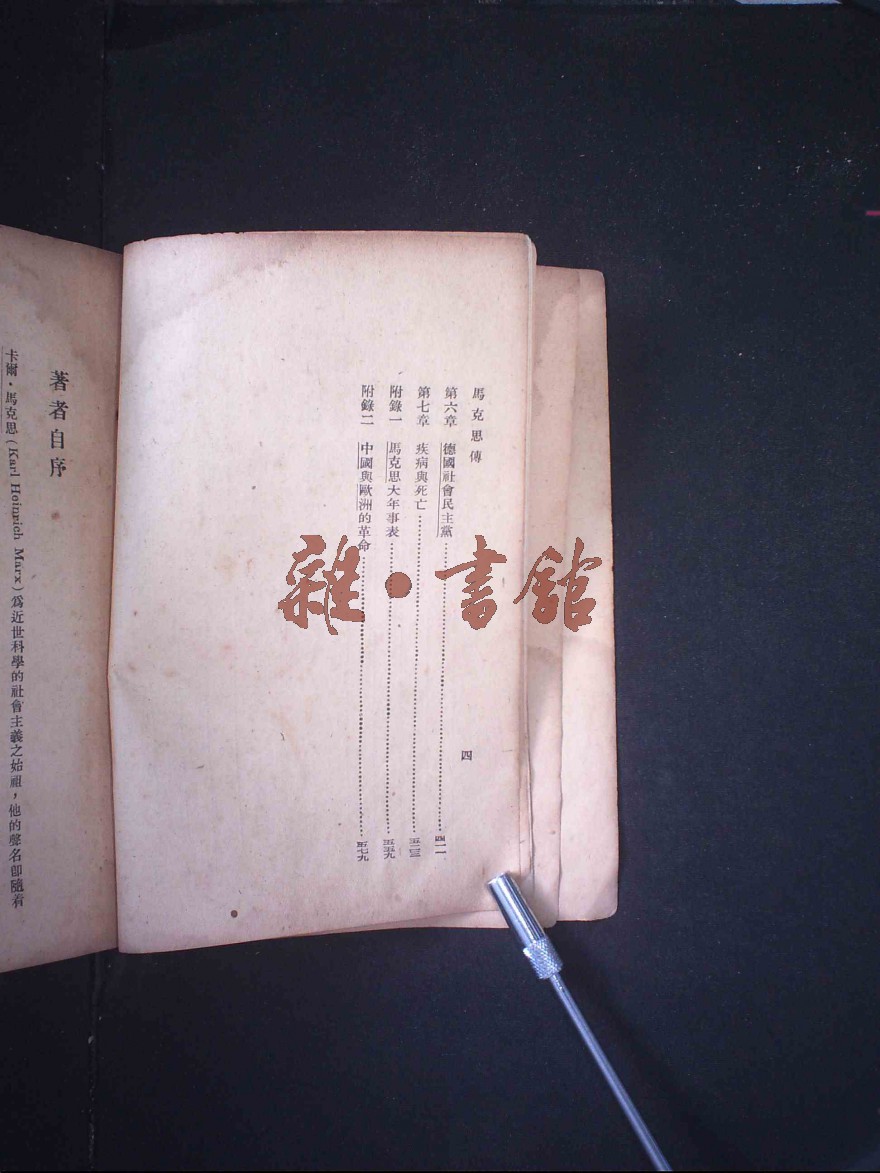 馬克思傳
四
第六章 德國社會民主黨………四二一
第七章 疾病與死亡………五二三
附錄一 馬克思大年事表………五五九
附錄二 中國與歐洲的革命………五七九
著者自序
卡爾・馬克思(Karl Heinrich Marx)爲近世科學的社會主義之始祖，他的聲名卽隨着
雜・書館